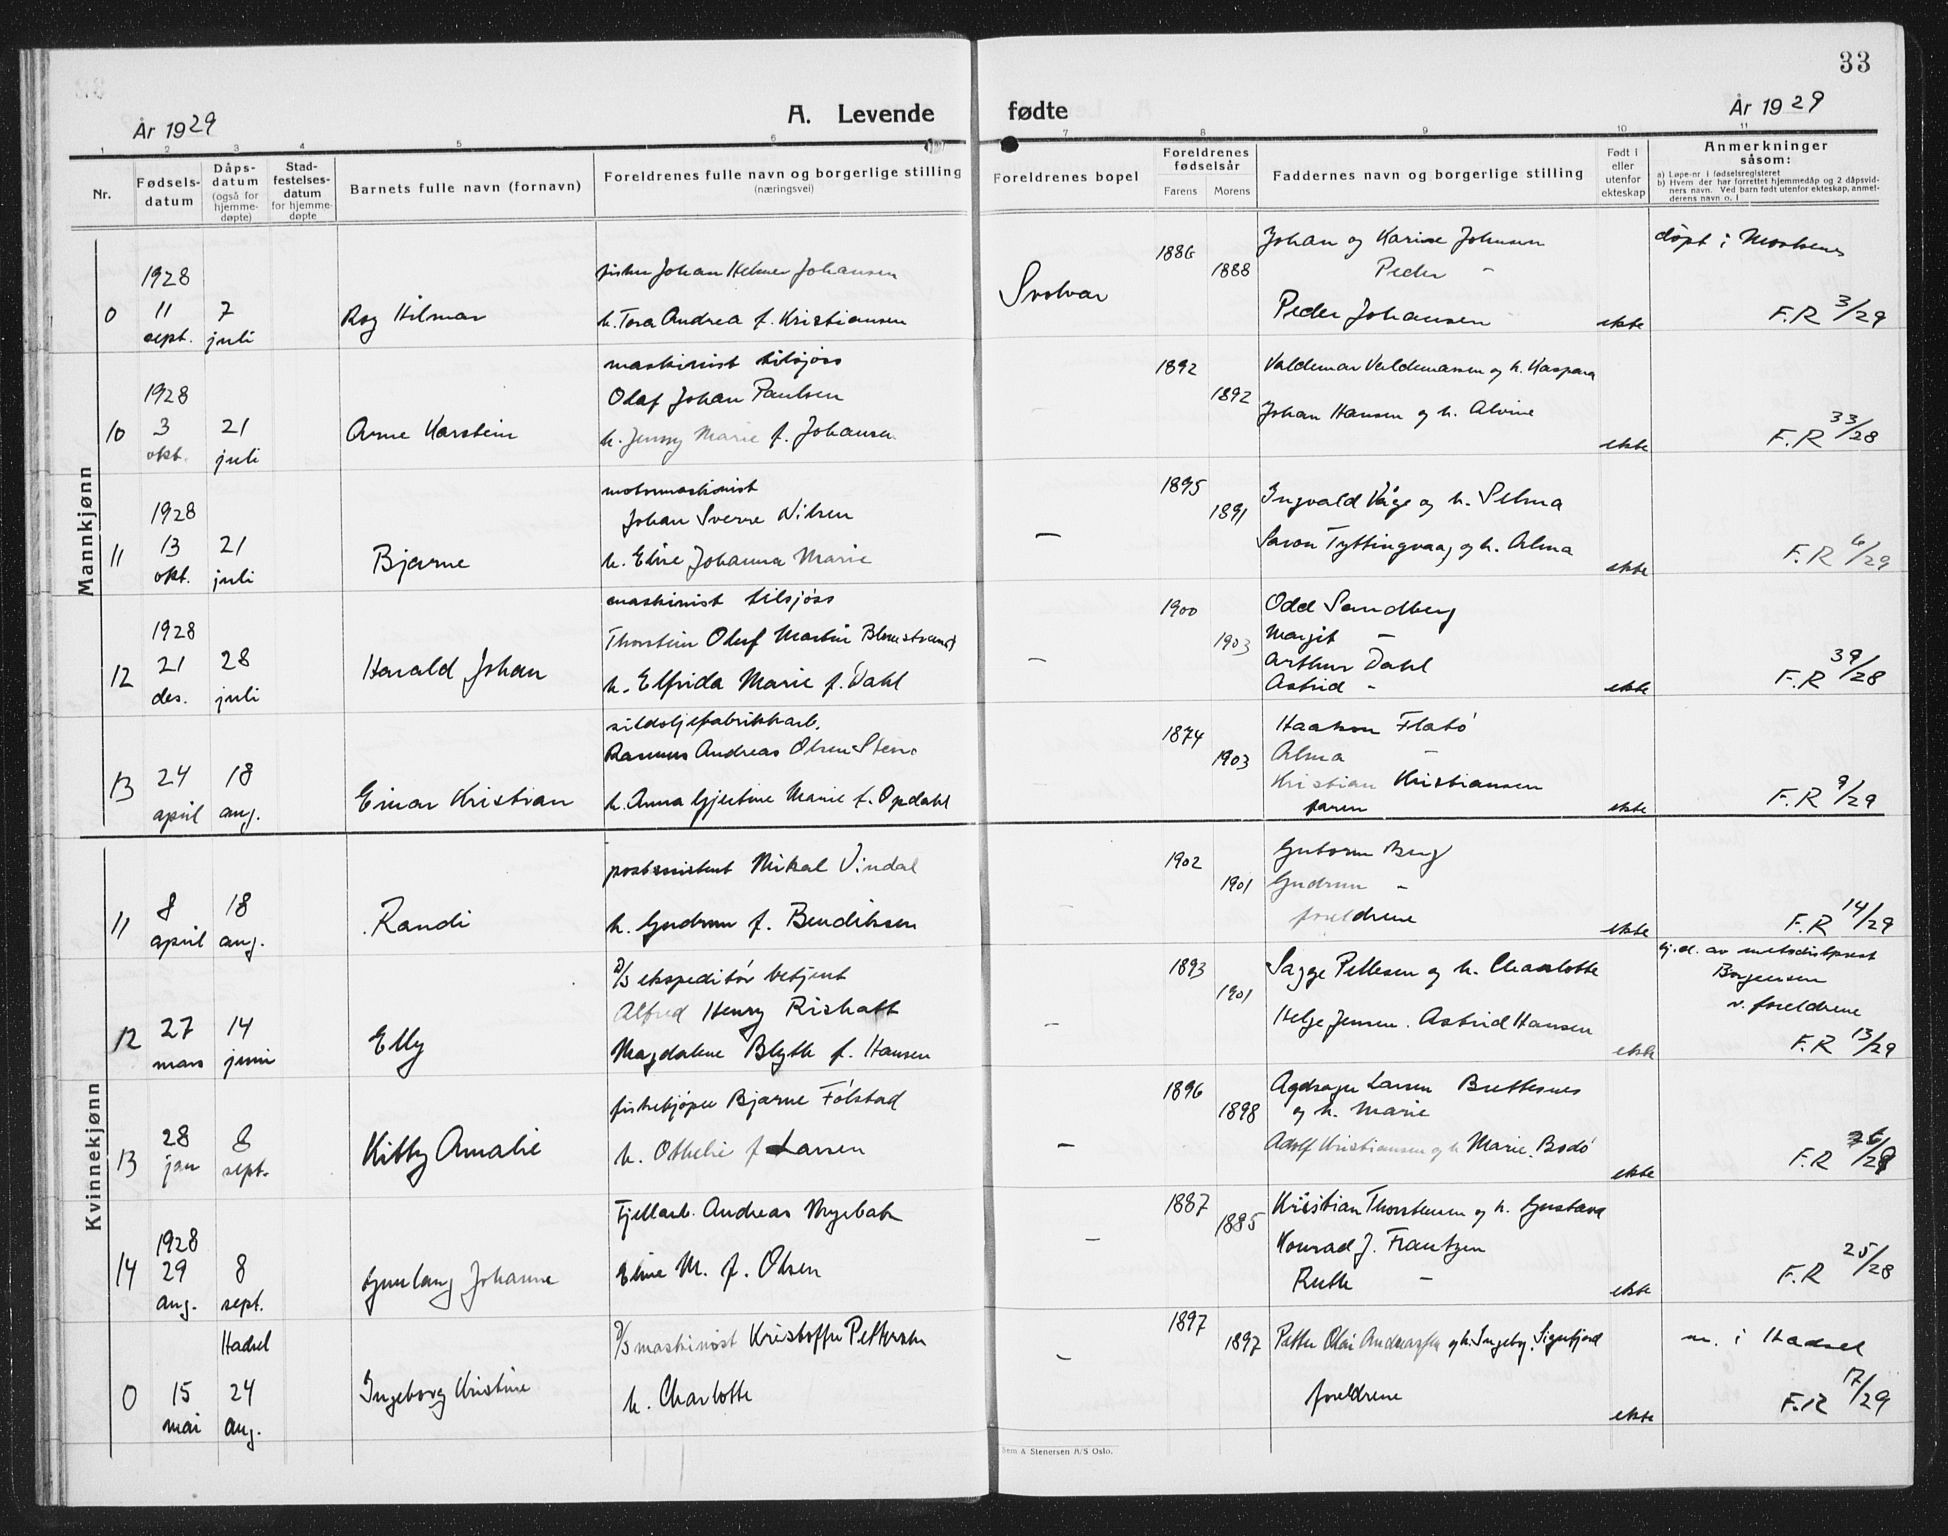 33
År 1929
A. Levende
fødte
År 1929
1 2 3 4 5 6 7 8 9 10 11
Nr.
Fødsels-
datum
Dåps-
datum
(også for
hjemme-
døpte)
Stad-
festelses-
datum
for hjemme-
døpte
Barnets fulle navn (fornavn)
Foreldrenes fulle navn og borgerlige stilling
(næringsvei)
Foreldrenes bopel
Foreldrenes
fødselsår
Farens
Morens
Faddernes navn og borgerlige stilling
Født i
eller
utenfor
ekteskap
Anmerkninger
såsom:
a) Løpe-nr i fødselsregisteret
b) Hvem der har forrettet hjemmedåp og 2 dåpsvid-
ners navn. Ved barn født utenfor ekteskap, anmel-
derens navn o. l
Mannkjønn
0
1928
11
sept.
7
juli
Roy Hilmar
fisker Johan Helmer Johansen
h. Tora Andrea f. Kristiansen
Svolvær
1886
1888
Johan og Karine Johnsen
Peder -
Peder Johansen
ekte
døpt i Moskenes
F.R 3/29
10
1928
3
okt.
21
juli
Arne Karstein
maskinist tilsjøss
Olaf Johan Paulsen
h. Jenny Marie f. Johansen
-
1892
1892
Valdemar Valdemarsen og h. Kaspara
Johan Hansen og h. Alvine
ekte
F.R 33/28
11
1928
13
okt.
21
juli
Bjarne
motormaskinist
Johan Sverre Nilsen
h. Eline Johanna Marie
-
1895
1891
Ingvald Våge og h. Selma
Saron Tyttingvaag og h. Alma
ekte
F.R 6/29
12
1928
21
des.
28
juli
Harald Johan
maskinist tilsjøss
Thorstein Oluf Martin Blomstrand
h. Elfrida Marie f. Dahl
-
1900
1903
Odd Sandberg
Margit -
Arthur Dahl
Astrid -
ekte
F.R 39/28
13
24
april
18
aug.
Einar Kristian
sildoljefabrikkarb.
Rasmus Andreas Olsen Stene
h. Anna Gjertine Marie f. Opdahl
1874
1903
Haakon Flatø
Alma -
Kristian Kristiansen
faren
ekte
F.R 9/29
Kvinnekjønn
11
8
april
18
aug.
Randi
postassistent Mikal Vindal
h. Gudrun f. Bendiksen
-
1902
1901
Guttorm Berg
Gudrun -
foreldrene
ekte
F.R 14/29
12
27
mars
14
juni
Elly
D/S ekspeditør betjent
Alfred Henry Rishatt
Magdalene Blyth f. Hansen
-
1893
1901
Sagge Pettesen og h. Charlotte
Helge Jensen. Astrid Hansen
ekte
hj.d. av metodistprest
Borgensen
v. foreldrene
F.R 13/29
13
28
jan
8
sept.
Kitty Amalie
fiskekjøper Bjarne Følstad
h. Othelie f Larsen
-
1896
1898
Larsen Brettesnes
og h. Marie
Adolf Kristiansen og h Marie, Bodø
ekte
F.R
14
1928
29
aug.
8
sept.
Gunlaug Johanne
Fjellarb. Andreas Myrbak
Eline M. f. Olsen
-
1887
1885
Kristian Thorstensen og h. Gustava
Konrad J. Frantzen
Ruth -
ekte
F.R 25/28
0
15
mai
Hadsel
24
aug.
Ingeborg Kristine
D/S maskinist Kristoffer Pettersen
h. Charlotte
-
1897
1897
Petter Olai Andreassen og h. Ingeborg, Sigerfjord
foreldrene
ekte
m. i Hadsel
F.R 17/29
Sem & Stenersen A/S Oslo.